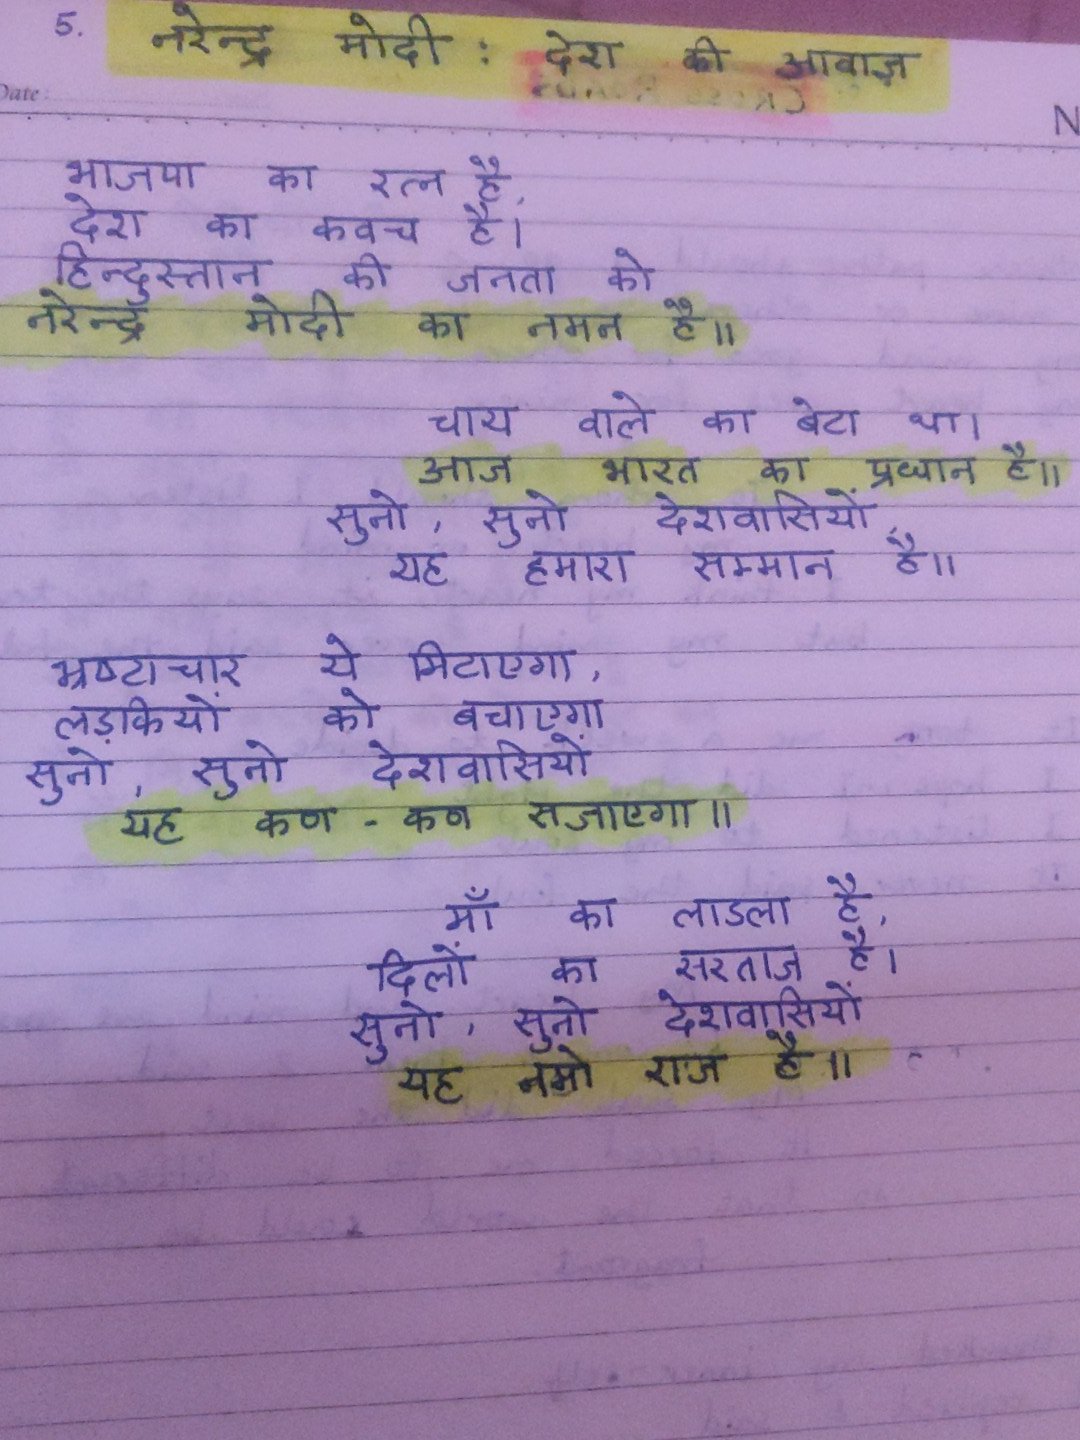 5. नरेन्द्र मोदी : देश की आवाज़
Date:
N
भाजपा का रत्न है,
देश का कवच है।
हिन्दुस्तान की जनता को
नरेन्द्र मोदी का नमन है॥
चाय वाले का बेटा था।
आज भारत का प्रधान है॥
सुनो, सुनो देशवासियों,
यह हमारा सम्मान है॥
भ्रष्टाचार ये मिटाएगा,
लड़कियों को बचाएगा
सुनो, सुनो देशवासियों
यह कण - कण सजाएगा॥
माँ का लाडला है,
दिलों का सरताज है।
सुनो, सुनो देशवासियों
यह नमो राज है॥